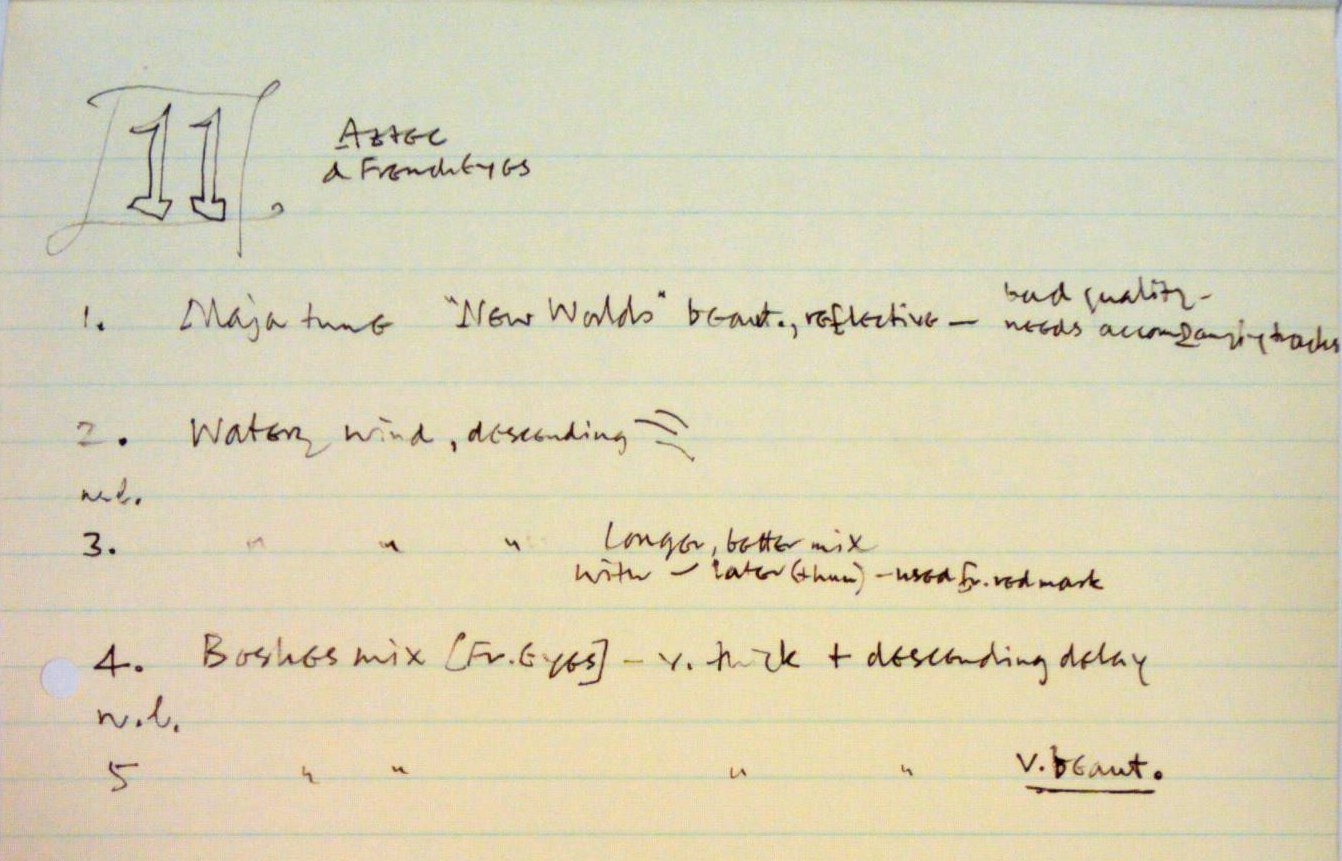 11.
Aztec
& French Eyes
1. Maja tune "New Worlds" beaut., reflective — bad quality -
needs accompanying tracks
2. Watery wind, descending
n.l.
3. " " " Longer, better mix
with - later (thun) - used Fr. red mark
4. Boshes mix [Fr. Eyes] - v. thick + descending delay
n.l.
5 " " " " v. beaut.